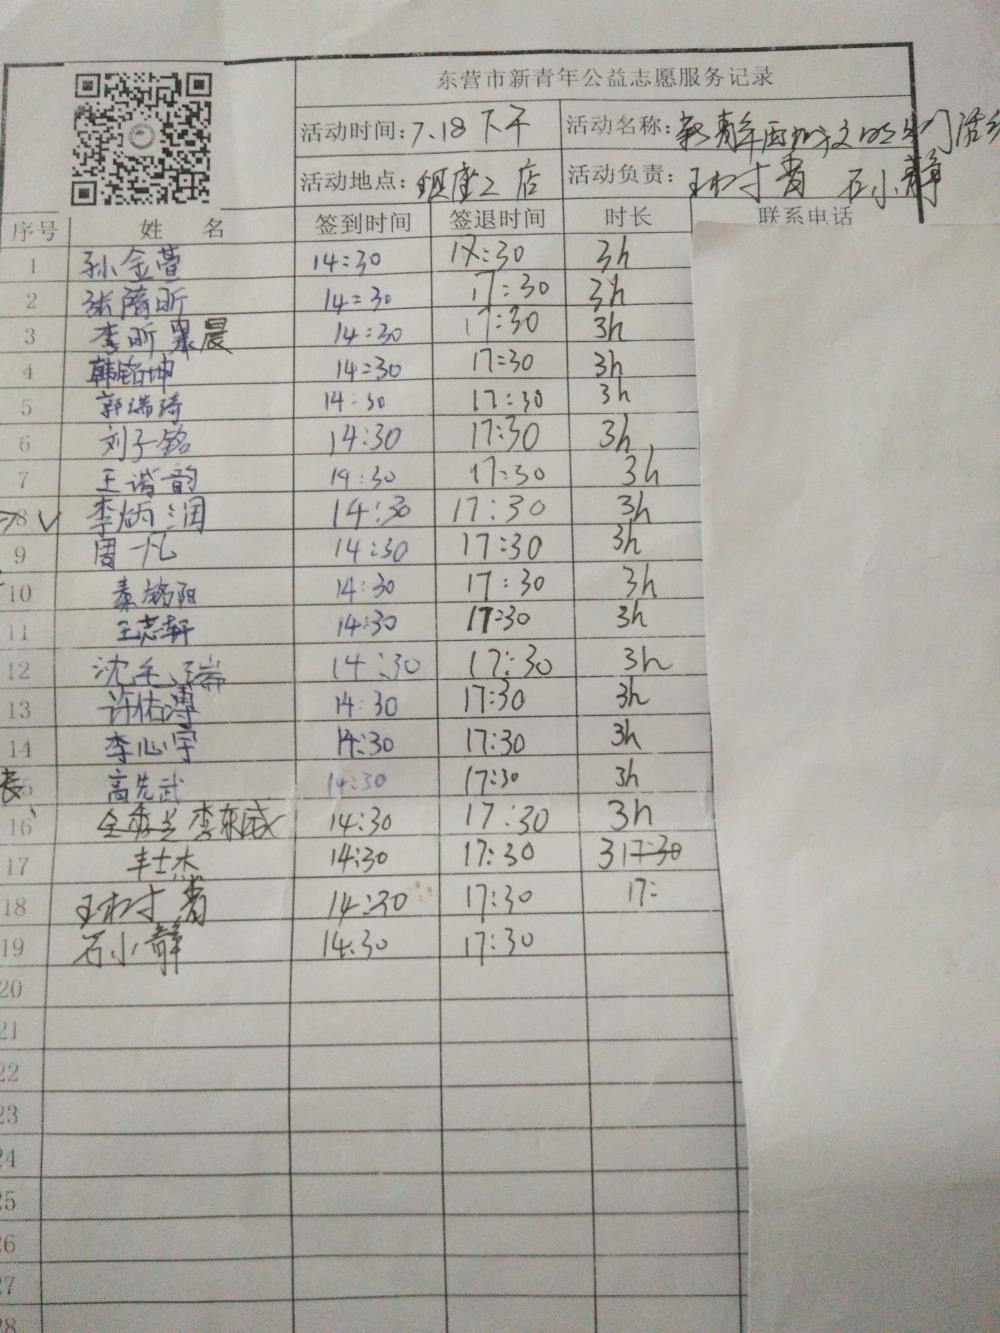 东营市新青年公益志愿服务记录
活动时间: 7.18 下午 活动名称: 新青年
活动地点: 店 活动负责: 石小静
序号 姓 名 签到时间 签退时间 时长 联系电话
1 孙金萱 14:30 17:30 3h
2 张 昕 14:30 17:30 3h
3 李昕晨 14:30 17:30 3h
4 韩铭坤 14:30 17:30 3h
5 郭瑞琦 14:30 17:30 3h
6 刘子铭 14:30 17:30 3h
7 王谐韵 14:30 17:30 3h
8 √ 李炳润 14:30 17:30 3h
9 周一凡 14:30 17:30 3h
10 秦铭阳 14:30 17:30 3h
11 王志轩 14:30 17:30 3h
12 沈 瑞 14:30 17:30 3h
13 许佑溥 14:30 17:30 3h
14 李心宇 14:30 17:30 3h
高先武 14:30 17:30 3h
16 李东威 14:30 17:30 3h
17 丰士杰 14:30 17:30 317:30
18 14:30 17:30 17:
19 石小静 14:30 17:30
20
21
22
23
24
25
26
27
28